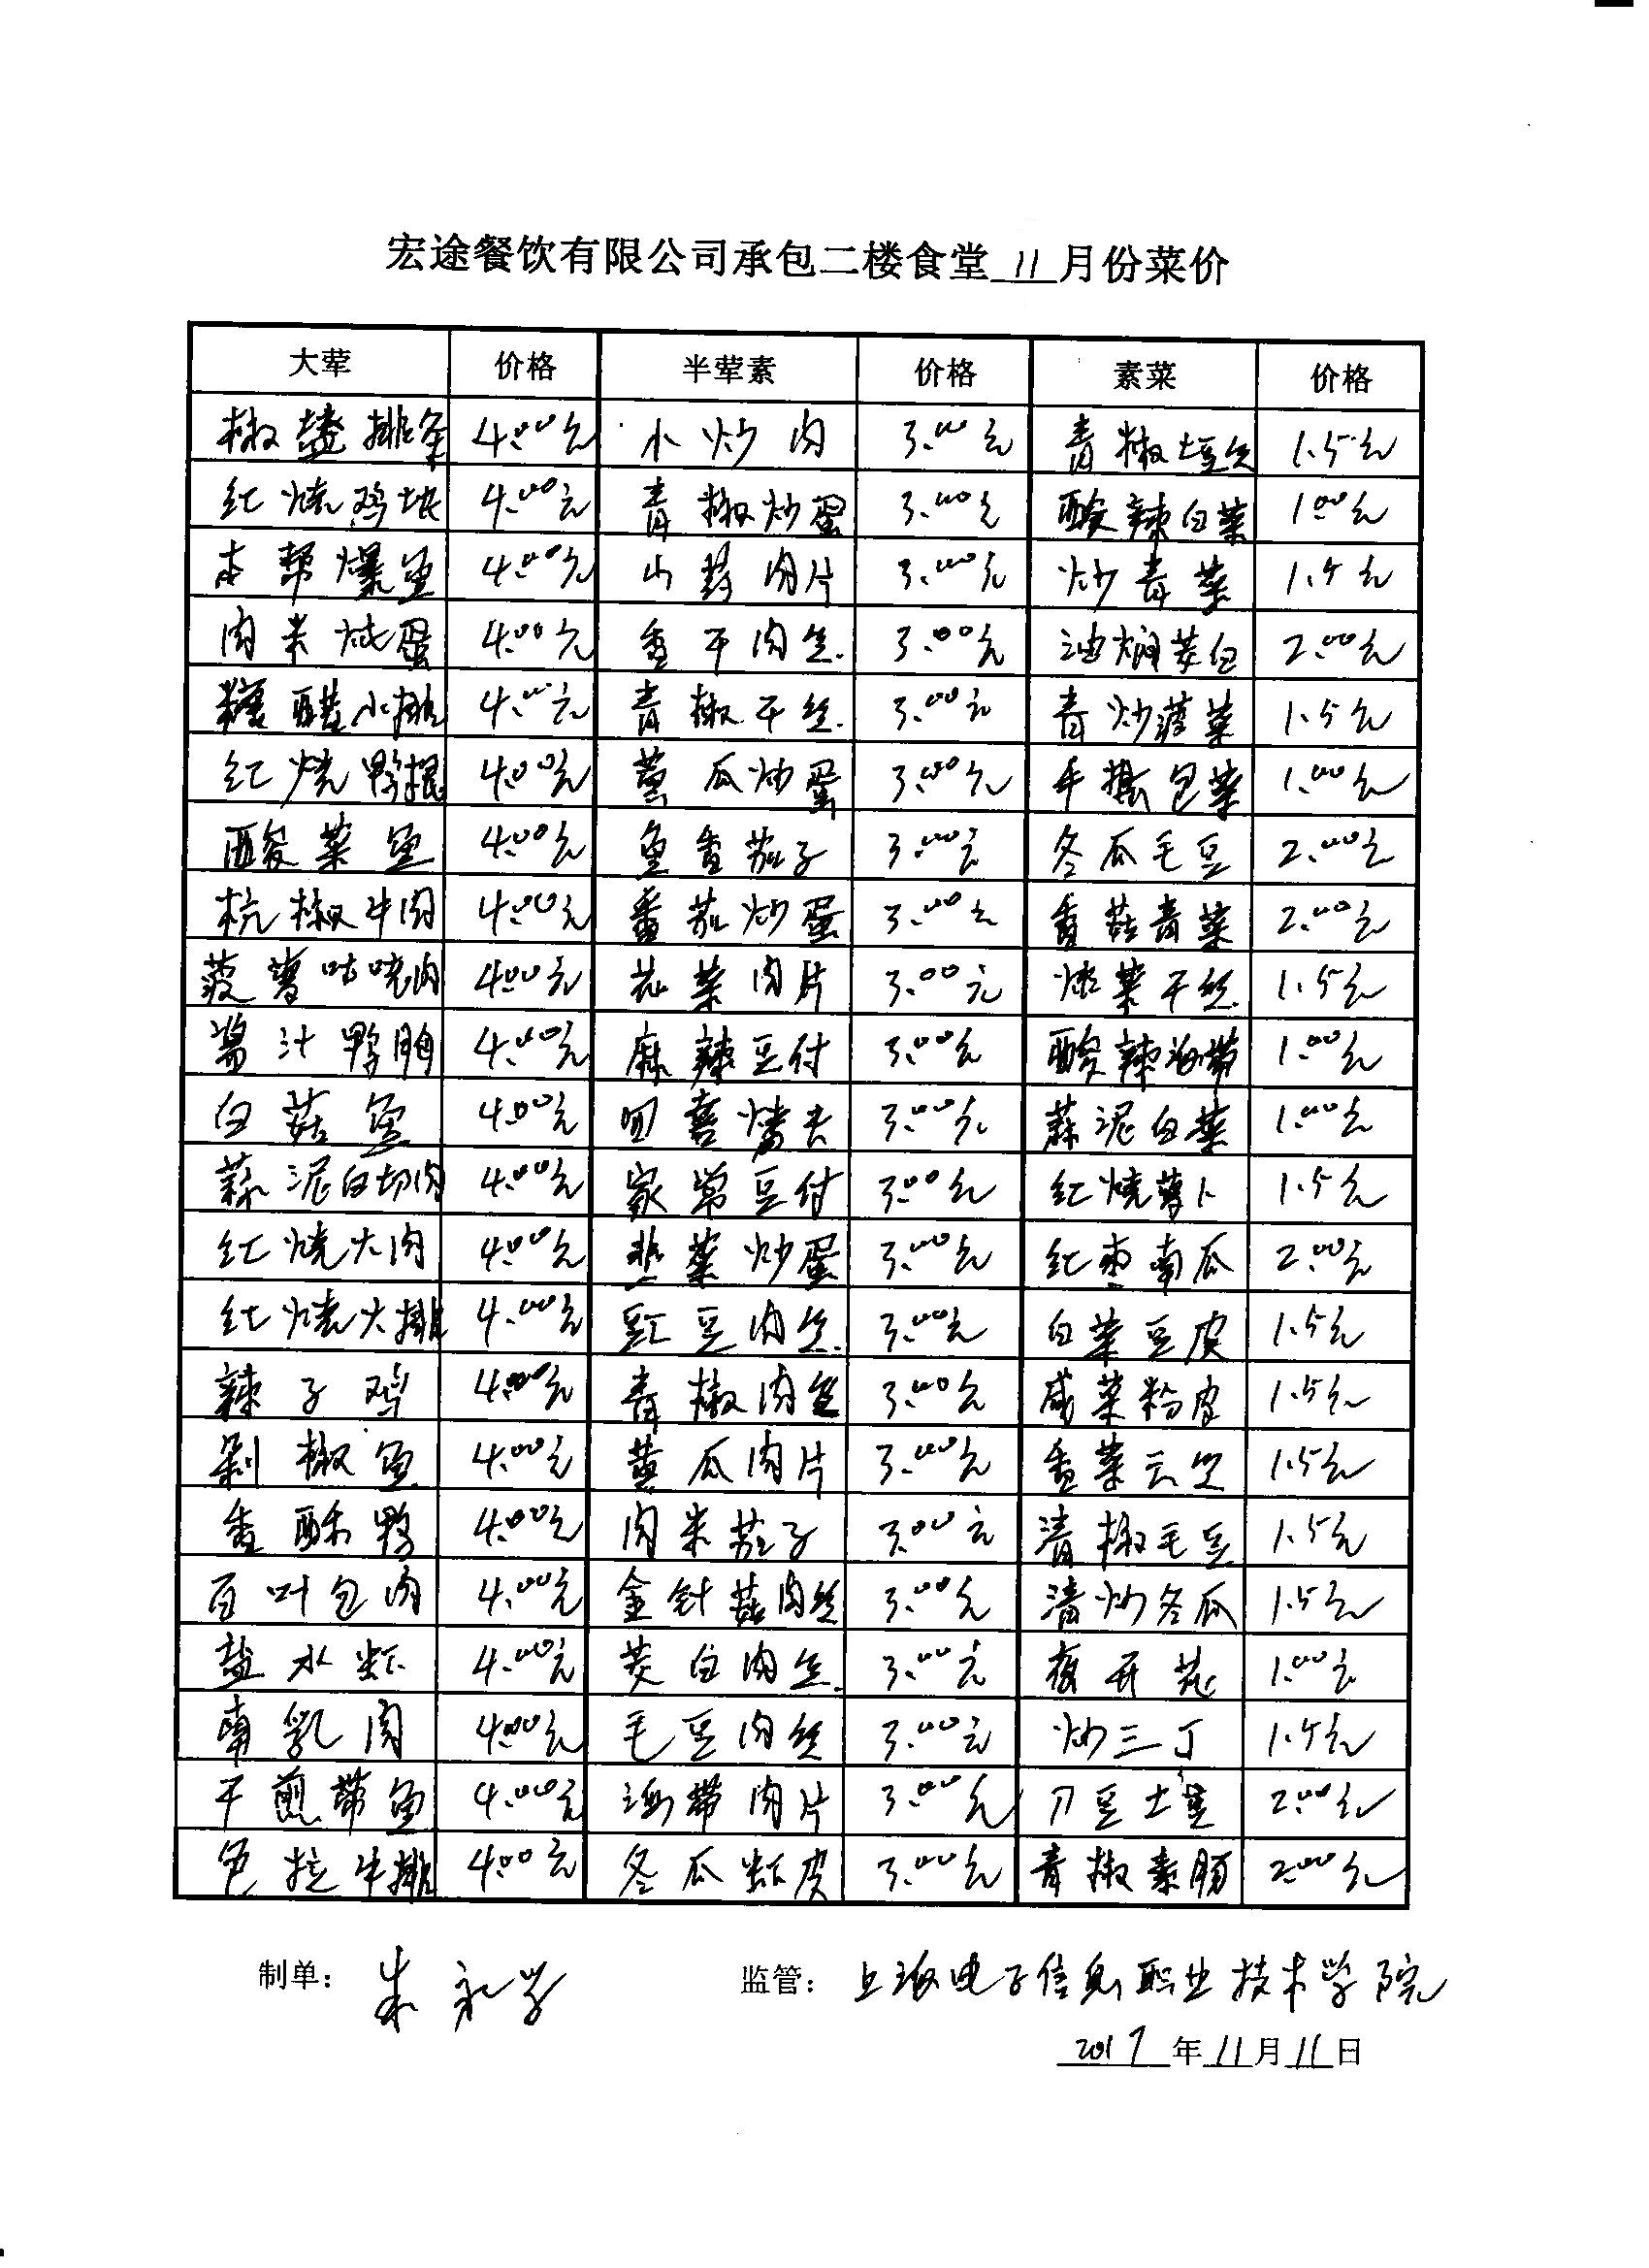 宏途餐饮有限公司承包二楼食堂 11 月份菜价
大荤 价格 半荤素 价格 素菜 价格
椒盐排条 4.00元 小炒肉 3.00元 青椒土豆丝 1.5元
红烧鸡块 4.00元 青椒炒蛋 3.00元 酸辣白菜 1.00元
本帮爆鱼 4.00元 山药肉片 3.00元 炒青菜 1.5元
肉米炖蛋 4.00元 香干肉丝 3.00元 油焖茭白 2.00元
糖醋小排 4.00元 青椒干丝 3.00元 青炒菠菜 1.5元
红烧鸭腿 4.00元 黄瓜炒蛋 3.00元 手撕包菜 1.00元
酸菜鱼 4.00元 鱼香茄子 3.00元 冬瓜毛豆 2.00元
杭椒牛肉 4.00元 番茄炒蛋 3.00元 香菇青菜 2.00元
菠萝咕咾肉 4.00元 花菜肉片 3.00元 干丝 1.5元
酱汁鸭胸 4.00元 麻辣豆付 3.00元 酸辣海带 1.00元
白菇鱼 4.00元 四喜烤夫 3.00元 蒜泥白菜 1.00元
蒜泥白切肉 4.00元 家常豆付 3.00元 红烧萝卜 1.5元
红烧大肉 4.00元 韭菜炒蛋 3.00元 红枣南瓜 2.00元
红烧大排 4.00元 豇豆肉丝 3.00元 白菜豆皮 1.5元
辣子鸡 4.00元 青椒肉丝 3.00元 咸菜粉皮 1.5元
剁椒鱼 4.00元 黄瓜肉片 3.00元 香菜云丝 1.5元
香酥鸭 4.00元 肉米茄子 3.00元 清椒毛豆 1.5元
百叶包肉 4.00元 金针菇肉丝 3.00元 清炒冬瓜 1.5元
盐水虾 4.00元 茭白肉丝 3.00元 夜开花 1.00元
南乳肉 4.00元 毛豆肉丝 3.00元 炒三丁 1.5元
干煎带鱼 4.00元 海带肉片 3.00元 刀豆土豆 2.00元
色拉牛排 4.00元 冬瓜虾皮 3.00元 青椒素肠 2.00元
制单： 朱永学 监管： 上海电子信息职业技术学院
2017 年 11 月 11 日